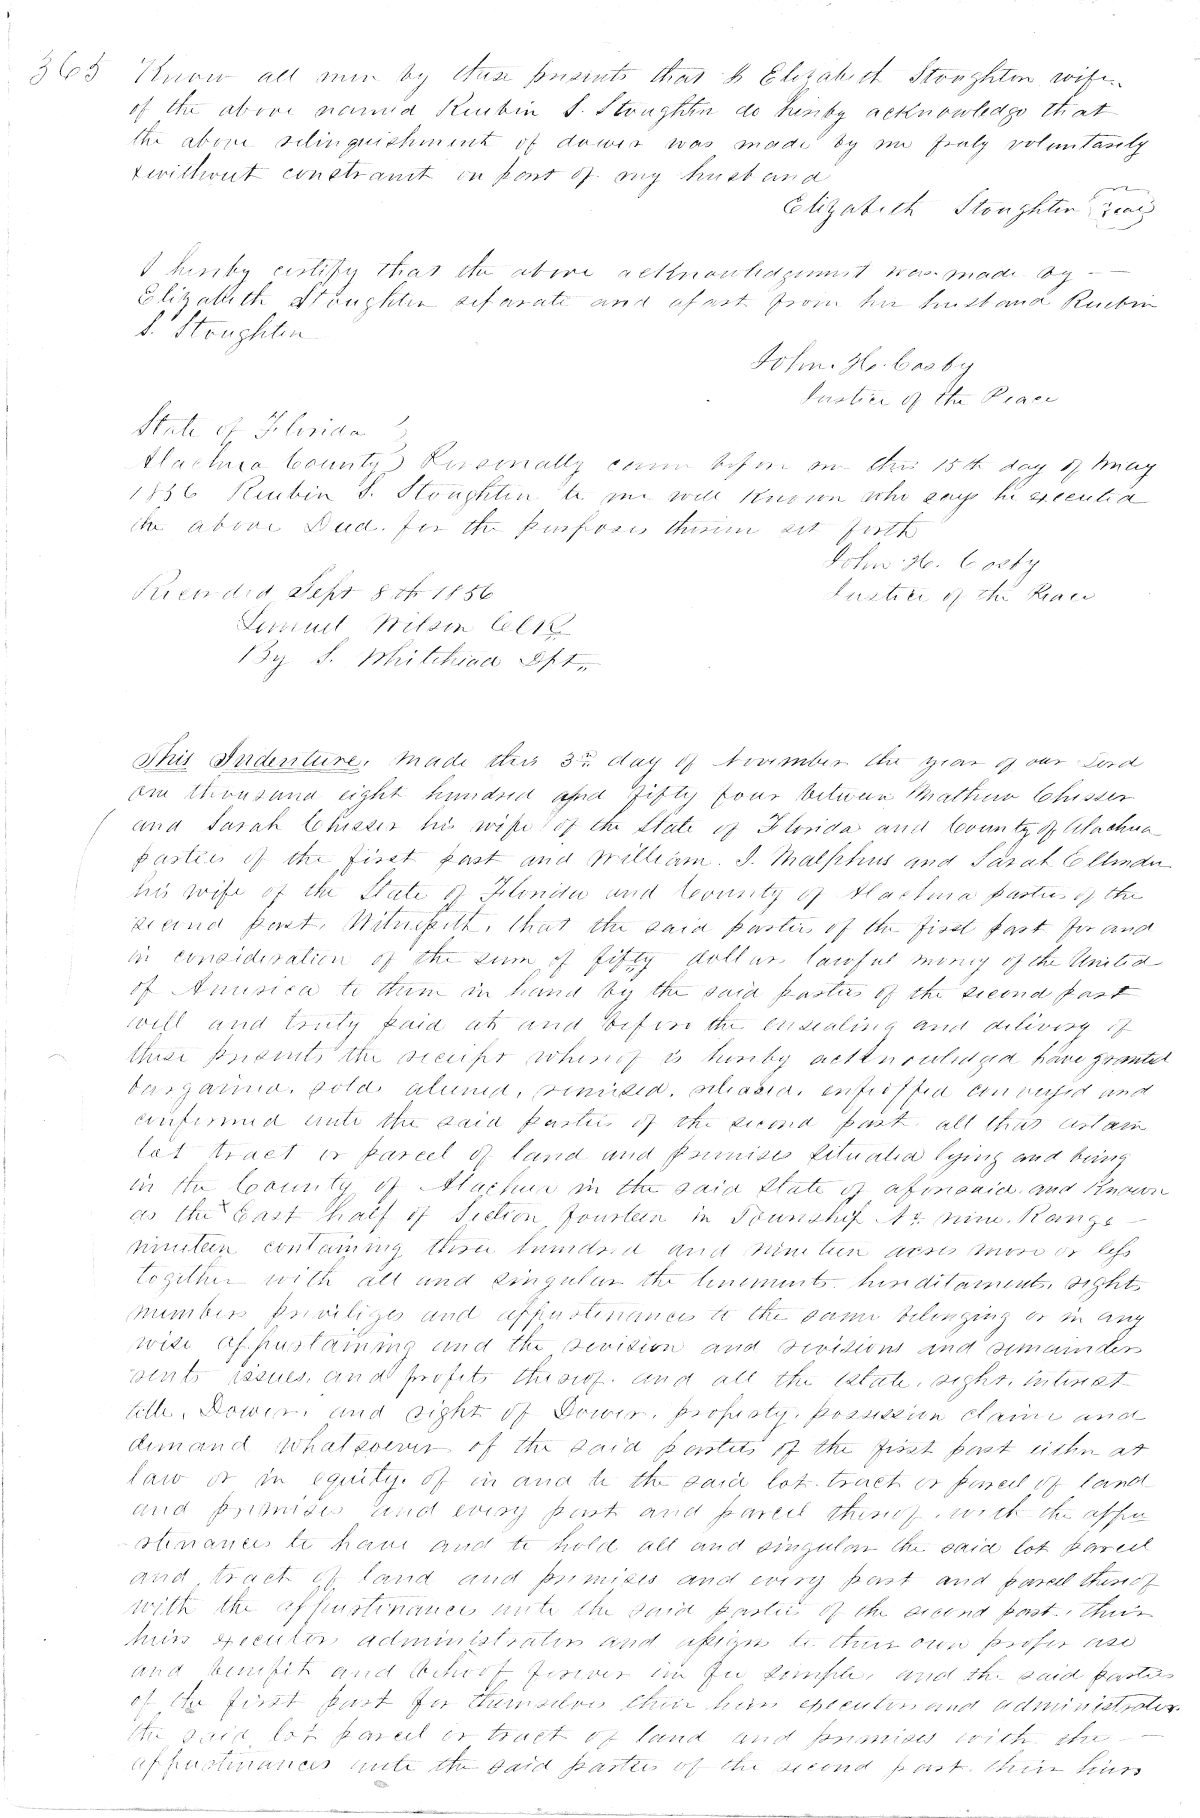 363
Know all men by these presents that I Elizabeth Stoughton wife
of the above named Reubin S. Stoughton do hereby acknowledge that
the above relinquishment of dower was made by me freely voluntarily
& without constraint on part of my husband
Elizabeth Stoughton (seal)
I hereby certify that the above acknowledgement was made by
Elizabeth Stoughton separate and apart from her husband Reubin
S. Stoughton
John. H. Cosby
Justice of the Peace
State of Florida }
Alachua County } Personally came before me this 15th day of may
1856 Reubin S. Stoughton to me well Known who says he executed
the above Deed. for the purposes therein set forth
John H. Cosby
Recorded Sept 8th 1856
Justice of the Peace
Lemuel Wilson Clk
By S. Whitehead Dpt.
This Indenture, made this 3rd day of November the year of our Lord
one thousand eight hundred and fifty four between Mathew Chesser
and Sarah Chesser his wife of the State of Florida and County of Alachua
parties of the first part and William. I. Malphus and Sarah Ellender
his wife of the State of Florida and County of Alachua parties of the
second part. Witnesseth, that the said parties of the first part for and
in consideration of the sum of fifty dollars lawful money of the United
of America to them in hand by the said parties of the second part
well and truly paid at and before the ensealing and delivery of
these presents the receipt whereof is hereby acknowledged have granted
bargained. sold aliened, remised. released. enfeoffed conveyed and
confirmed unto the said parties of the second part all that certain
lot tract or parcel of land and premises situated lying and being
in the County of Alachua in the said State of aforesaid and Known
as the East half of Section fourteen in Township No. nine. Range
nineteen containing three hundred and nineteen acres more or less
together with all and singular the tenements. hereditaments. rights
members priviliges and appurtenances to the same belonging or in any
wise appurtaining and the revision and revisions and remainders
rents issues. and profits thereof. and all the estate. right. interest
title. Dower. and right of Dower. property. possession claim and
demand whatsoever of the said parties of the first part either at
law or in equity. of in and to the said lot tract or parcel of land
and premises and every part and parcel thereof. with the appu
rtenances to have and to hold all and singular the said lot parcel
and tract of land and premises and every part and parcel thereof
with the appurtinances unto the said parties of the second part. their
heirs executors administrators and assigns to their own proper use
and benefit and behoof forever in fee simple. and the said parties
of the first part for themselves their heirs executors and administrators
the said lot parcel or tract of land and premises with the
appurtinances unto the said parties of the second part. their heirs